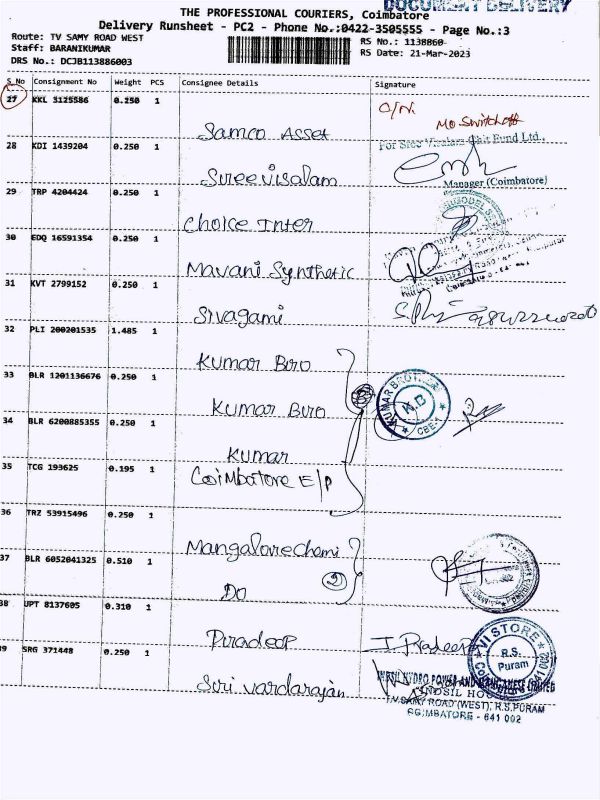 DOCUMENT DELIVERY
THE PROFESSIONAL COURIERS, Coimbatore
Delivery Runsheet - PC2 - Phone No.:0422-3505555 - Page No.:3
Route: TV SAMY ROAD WEST
Staff: BARANIKUMAR
DRS No.: DCJB113886003
RS No.: 1138860
RS Date: 21-Mar-2023
S No Consignment No Weight PCS Consignee Details Signature
27 KKL 3125586 0.250 1 Samco Asset
28 KDI 1439204 0.250 1 Sureevisalam
For Sree Visalam Chit Fund Ltd.,
Manager (Coimbatore)
29 TRP 4204424 0.250 1 Choice Inter
30 EDQ 16591354 0.250 1 Mavani Synthetic
31 KVT 2799152 0.250 1 Sivagami
32 PLI 200201535 1.485 1 Kumar Bro
33 BLR 1201136676 0.250 1 Kumar Bro
KUMAR BROTHERS
K.B
CBE-1
34 BLR 6200885355 0.250 1 Kumar
35 TCG 193625 0.195 1 Coimbatore E/P
36 TRZ 53915496 0.250 1 Mangalore Chemi
37 BLR 6052041325 0.510 1 Do
38 UPT 8137605 0.310 1 Puradeep
I. Pradeep
VI STORE
R.S.
Puram
Coimbatore 641 002
39 SRG 371448 0.250 1 Suri vardarajan
INDSIL HYDRO POWER AND MANGANESE LIMITED
INDSIL HOUSE
T.V. SAMY ROAD (WEST), R.S. PURAM
COIMBATORE - 641 002